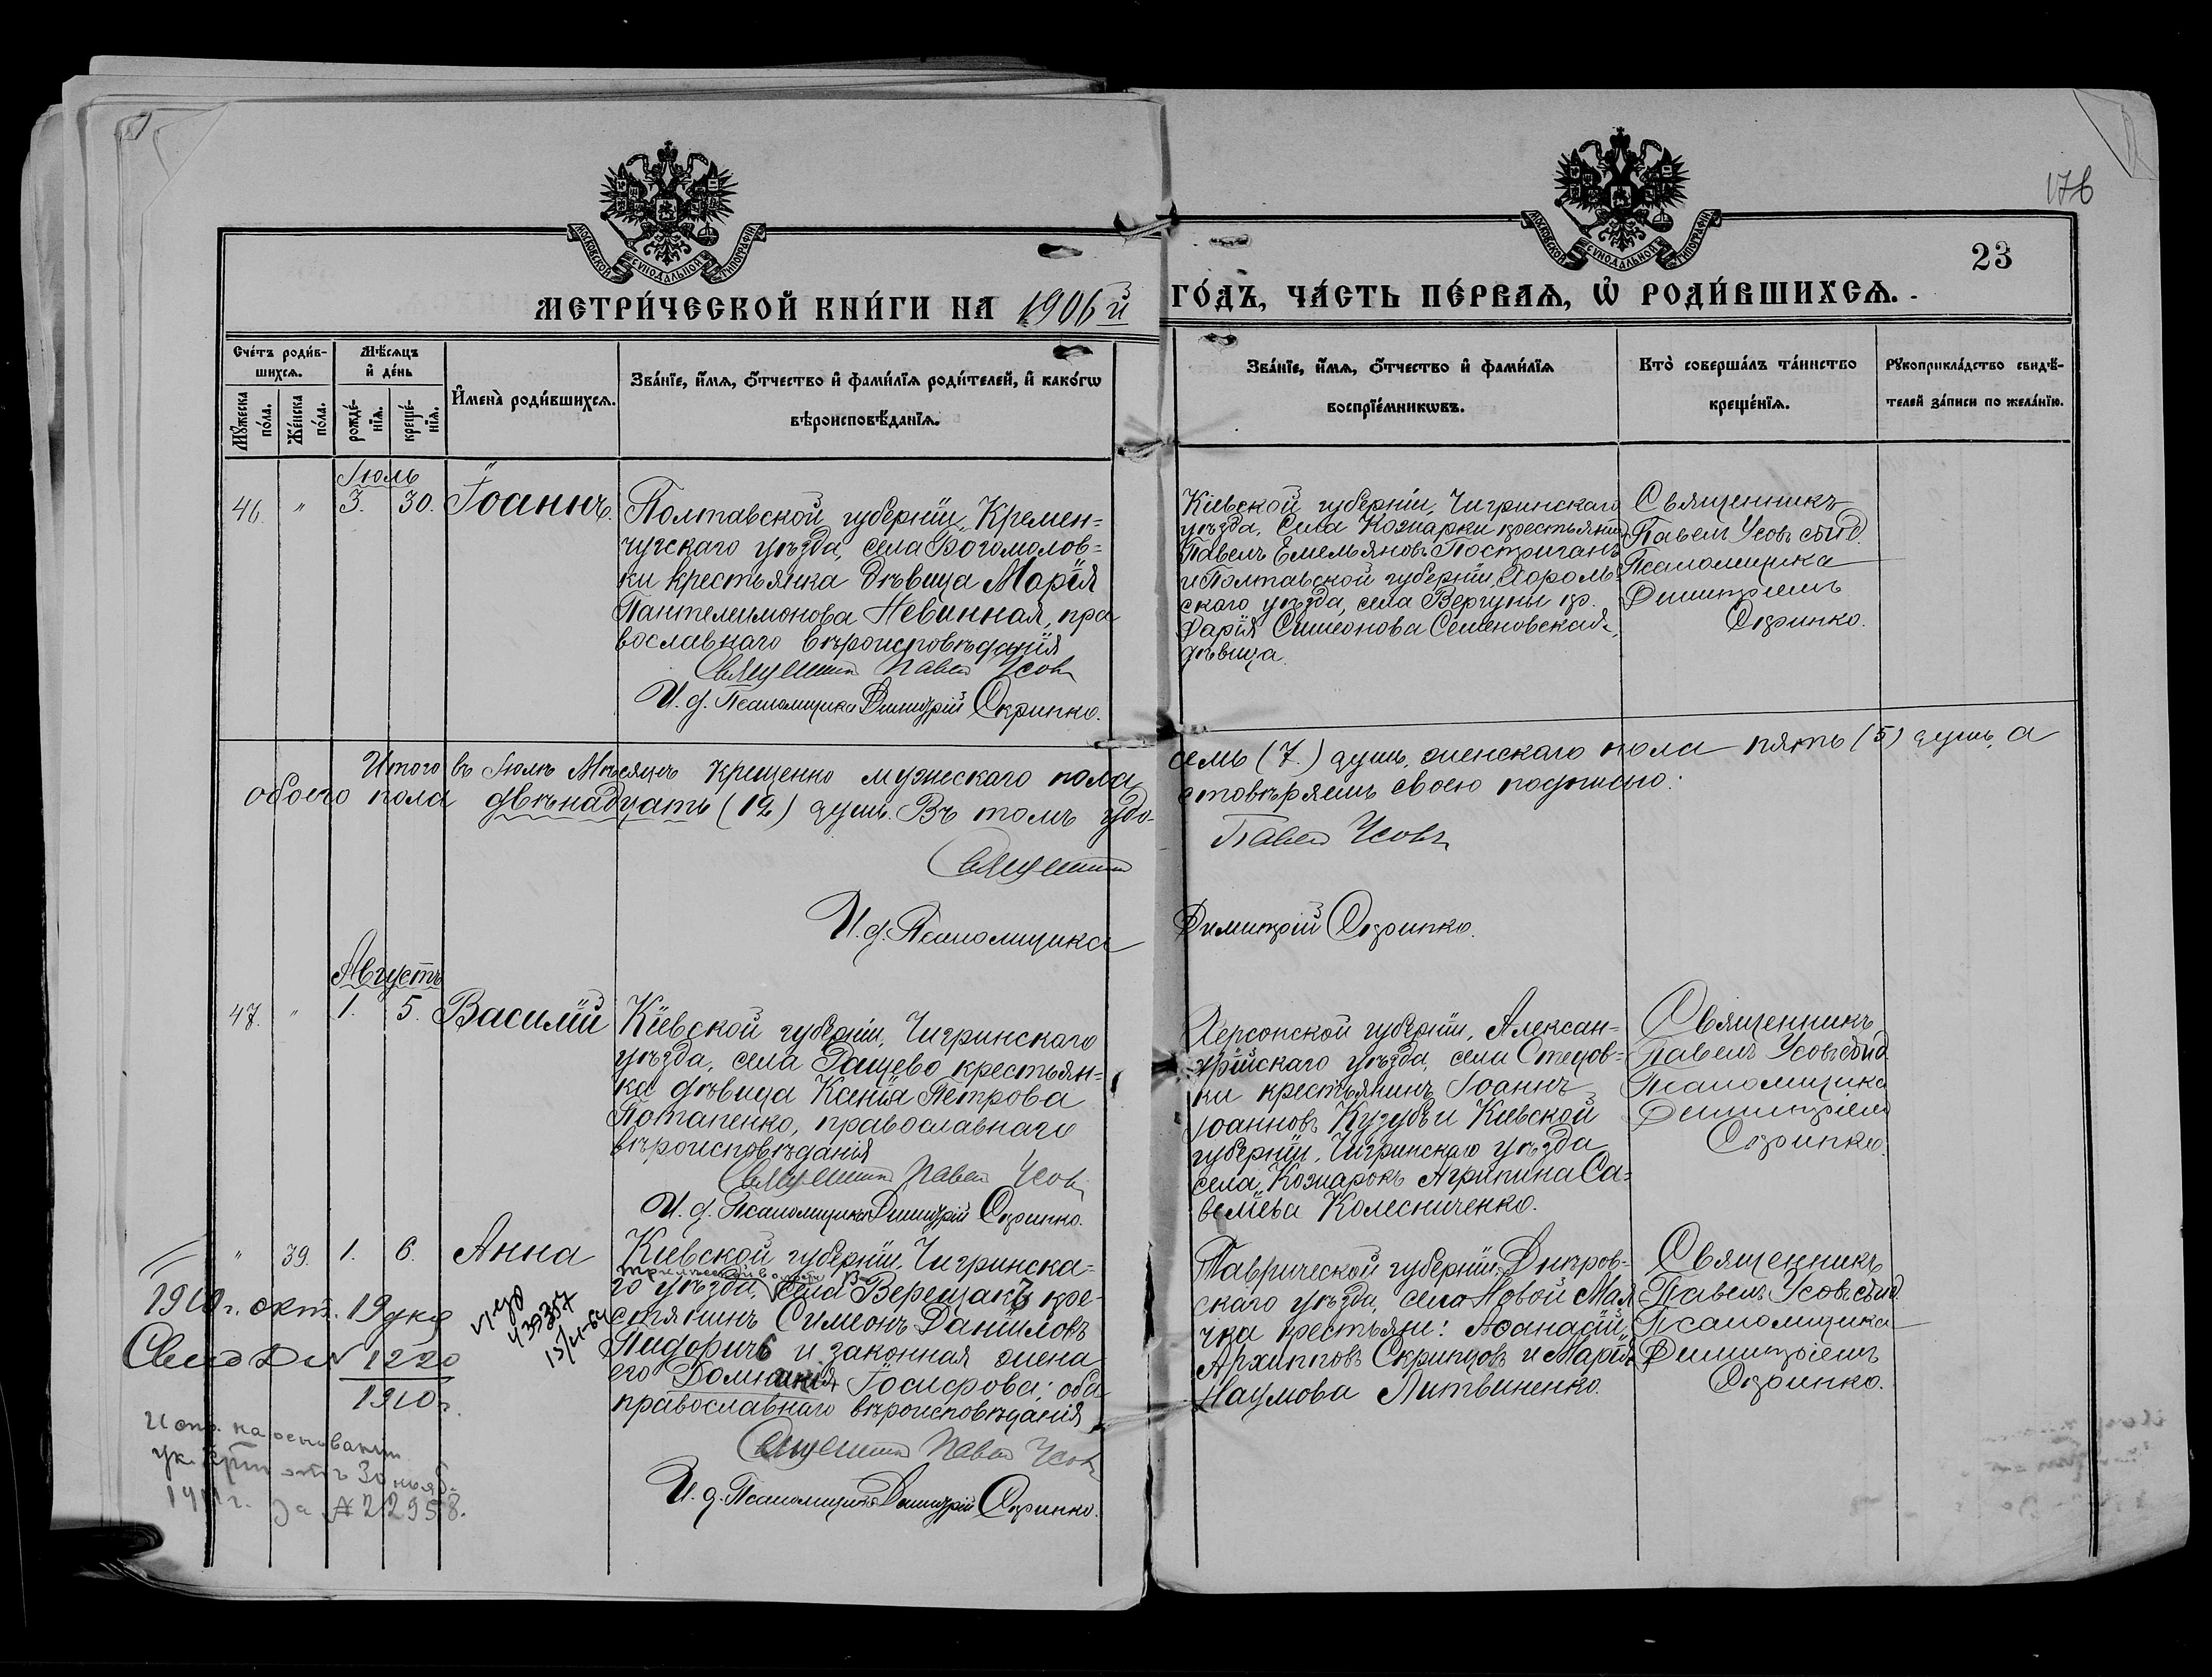 176
23
МОСКОВСКОЙ СѴНОДАЛЬНОЙ ТИПОГРАФІИ
МОСКОВСКОЙ СѴНОДАЛЬНОЙ ТИПОГРАФІИ
МЕТРИ́ЧЕСКОЙ КНИ́ГИ НА 1906й ГО́ДЪ, ЧА́СТЬ ПЕ́РВАѦ, Ѡ РОДИ́ВШИХСѦ.
Сче́тъ роди́в-
шихсѧ.
Мꙋ́жеска по́ла.
Же́нска по́ла.
Мѣ́сѧцъ
и де́нь
рожде́-
нїѧ.
креще́-
нїѧ.
Имена̀ роди́вшихсѧ.
Зва́нїе, и́мѧ, ѻ́тчество и фами́лїѧ роди́телей, и како́гѡ
вѣроисповѣ́данїѧ.
Зва́нїе, и́мѧ, ѻ́тчество и фами́лїѧ
воспрїе́мникѡвъ.
Кто̀ соверша́лъ та́инство
креще́нїѧ.
Рꙋкоприкла́дство свидѣ́-
телей за́писи по жела́нїю.
Іюль
46. " 3. 30. Іоаннъ.
Полтавской губерніи, Кремен=
чугскаго уѣзда, села Богомолов=
ки крестьянка дѣвица Марія
Пантелимонова Невинная, пра
вославнаго вѣроисповѣданія
Священникъ Павелъ Усовъ
И. д. Псаломщика Димитрій Скрипко.
Кіевской губерніи, Чигринскаго
уѣзда, села Кожарки крестьянинъ
Павелъ Емельяновъ Постриганъ
и Полтавской губерніи, Хороль=
скаго уѣзда, села Вергуны кр.
Дарія Симеонова Семеновская,
дѣвица.
Священникъ
Павелъ Усовъ съ и. д.
Псаломщика
Димитріемъ
Скрипко.
Итого въ Іюлѣ Мѣсяцѣ крещенно мужескаго пола семь (7.) душъ, женскаго пола пять (5) душъ, а
обоего пола двѣнадцать (12) душъ. Въ томъ удо-
стовѣряемъ своею подписью:
Священникъ Павелъ Усовъ
И. д. Псаломщика Димитрій Скрипко.
Августъ
47. " 1. 5. Василій
Кіевской губерніи, Чигринскаго
уѣзда, села Ращево крестьян=
ка дѣвица Ксенія Петрова
Потапенко, православнаго
вѣроисповѣданія
Священникъ Павелъ Усовъ
И. д. Псаломщика Димитрій Скрипко.
Херсонской губерніи, Алексан=
дрійскаго уѣзда, села Стецов=
ки крестьянинъ Іоаннъ
Іоанновъ Кузубъ и Кіевской
губерніи, Чигринскаго уѣзда
села, Кожарокъ Агрипина Са=
веліева Колесниченко.
Священникъ
Павелъ Усовъ съ и д
Псаломщика
Димитріемъ
Скрипко.
" 39. 1. 6. Анна
Кіевской губерніи, Чигринска=
го уѣзда, села Верещакъ кре-
стянинъ Симеонъ Даниловъ
Пидоричъ и законная жена
его Домникія Іосифова; оба
православнаго вѣроисповѣданія
Священникъ Павелъ Усовъ
И. д. Псаломщика Димитрій Скрипко.
Таврической губерніи, Днѣпров-
скаго уѣзда, села Новой Мая
чка крестьяне: Аѳанасій
Архиповъ Скрипцовъ и Марія
Наумова Литвиненко.
Священникъ
Павелъ Усовъ съ и д
Псаломщика
Димитріемъ
Скрипко.
1910 г. окт. 19
1220
1910 г.
43937
Испр. на основаніи
ук. отъ 30 нояб.
1911 г. за № 22958.